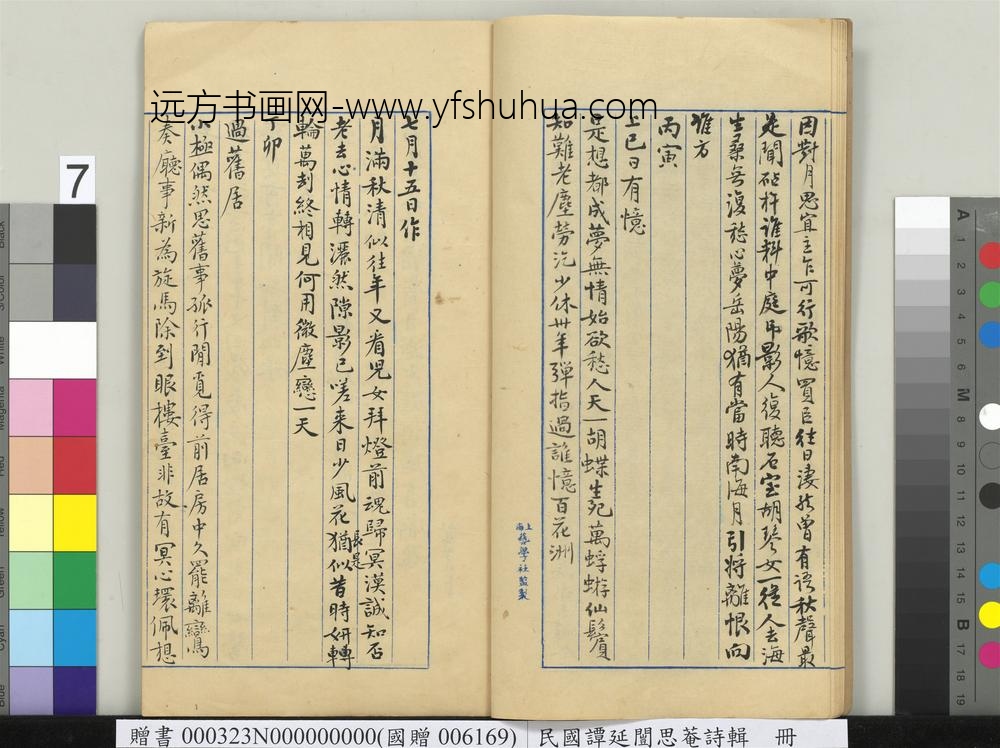 远方书画网-www.yfshuhua.com
因對月思宜主乍可行歌憶買臣往日淒然曾有語秋聲最
是聞砧杵誰料中庭吊影人復聽石室胡琴女一從人去海
生桑無復愁心夢岳陽猶有當時南海月引將離恨向
誰方
丙寅
上巳日有憶
是想都成夢無情始欲愁人天一胡蝶生死萬蜉蝣仙鬢
知難老塵勞汔少休卅年彈指過誰憶百花洲
上海藝學社監製
七月十五日作
月滿秋清似往年又看兒女拜燈前魂歸冥漠誠知否
老去心情轉灑然隙影已嗟来日少風花猶似昔時妍轉
長是
輪萬刧終相見何用微塵戀一天
丁卯
過舊居
極偶然思舊事孤行閒覓得前居房中久罷離鸞
奏廳事新為旋馬除到眼樓臺非故有冥心環佩想
7
Black
3/Color
White
Magenta
Red
Yellow
Green
Cyan
Blue
A 1 2 3 4 5 6 M 8 9 10 11 12 13 14 15 B 16 17 18 19
贈書 000323N000000000(國贈 006169) 民國譚延闓思菴詩輯 冊